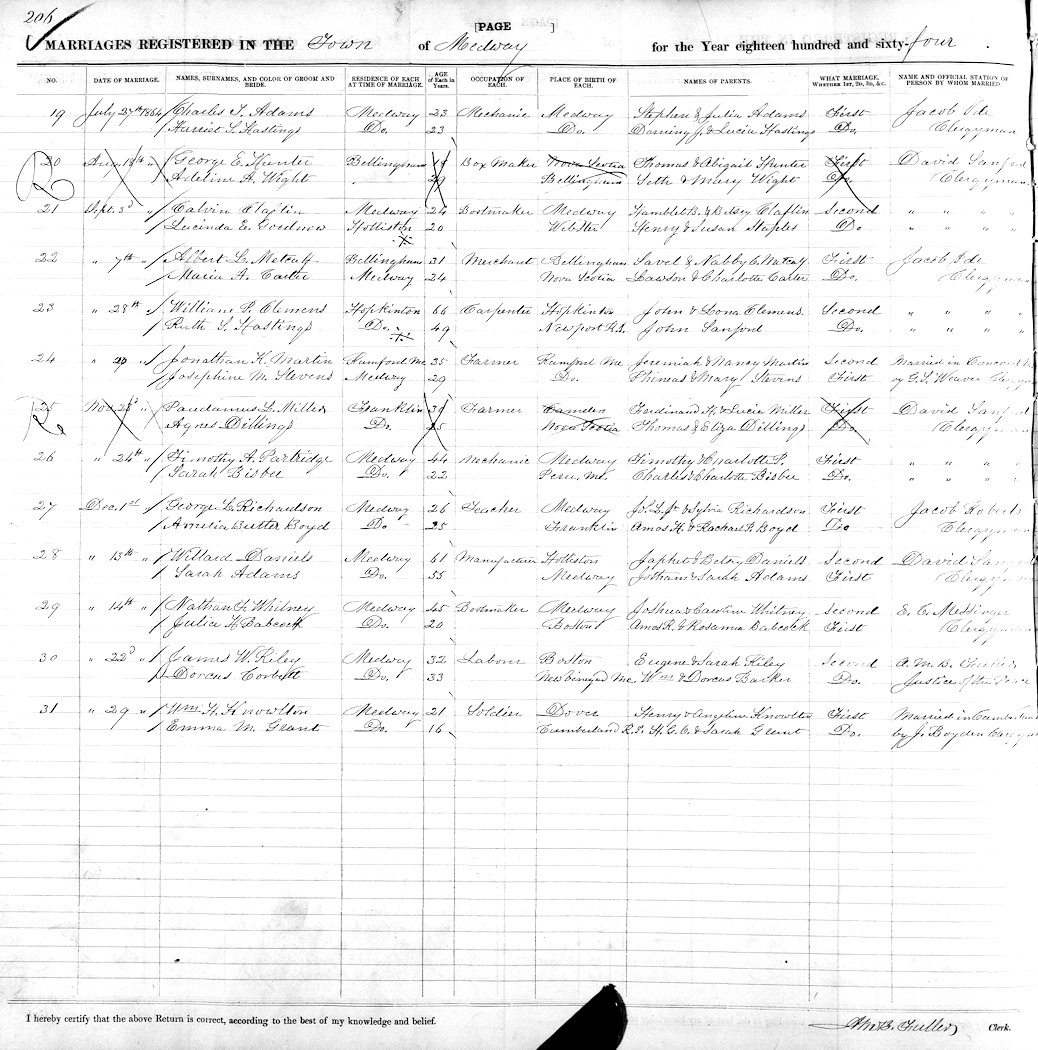 206
[PAGE ]
MARRIAGES REGISTERED IN THE Town of Medway for the Year eighteen hundred and sixty-four.
NO. DATE OF MARRIAGE. NAMES, SURNAMES, AND COLOR OF GROOM AND BRIDE. RESIDENCE OF EACH AT TIME OF MARRIAGE. AGE of Each in Years. OCCUPATION OF EACH. PLACE OF BIRTH OF EACH. NAMES OF PARENTS. WHAT MARRIAGE. WHETHER 1ST, 2D, 3D, &c. NAME AND OFFICIAL STATION OF PERSON BY WHOM MARRIED
19 July 27th 1864 Charles T. Adams Medway 23 Mechanic Medway Stephen & Julia Adams First Jacob Ide
Harriet S. Hastings Do. 23 Do. J. & Lucia Hastings Do. Clergyman
20 Aug. 18th " George E. Hunter Bellingham Box Maker Nova Scotia Thomas & Abigail Hunter First David Sanford
Adeline A. Wight Bellingham Seth & Mary Wight Clergyman
21 Sept. 3d " Calvin Claflin Medway 24 Bootmaker Medway Hamblet B. & Betsey Claflin Second " " " "
Lucinda E. Goodnow Holliston 20 Webster Henry & Susan Staples Do. " " " "
22 " 7th " Albert L. Metcalf Bellingham 31 Merchant Bellingham Savel & Nabby C. Metcalf First Jacob Ide
Maria A. Carter Medway 24 Nova Scotia Lawson & Charlotte Carter Do. Clergyman
23 " 28th " William P. Clemens Hopkinton 66 Carpenter Hopkinton John & Lona Clemens Second " " " "
Ruth S. Hastings Do. 49 Newport R.I. John Sanford Do. " " " "
24 " " Jonathan K. Martin Rumford Me. 35 Farmer Rumford Me. Jeremiah & Nancy Martin Second Married in Concord
Josephine M. Stevens Medway 29 Do. Phineas & Mary Stevens First by G.S. Weaver
25 Nov. 23d " L. Miller Franklin Farmer Camden Ferdinand H. & Lucia Miller First David Sanford
Agnes Dillings Do. Nova Scotia Thomas & Eliza Dillings Do. Clergyman
26 " 24th " Timothy A. Partridge Medway 44 Mechanic Medway Timothy & Charlotte P. First " " " "
Sarah Bisbee Do. 22 Peru, Me. Charles & Charlotte Bisbee Do. " " " "
27 Dec. 1st " George L. Richardson Medway 26 Teacher Medway & Sylvia Richardson First Jacob Roberts
Amelia Butler Boyd Do 25 Franklin Amos H. & Rachael F. Boyd Do Clergyman
28 " 13th " Willard Daniels Medway 61 Manufacturer Holliston Japhet & Betsey Daniels Second David Sanford
Sarah Adams Do. 55 Medway Jotham & Sarah Adams First Clergyman
29 " 14th " Nathan F. Whitney Medway 45 Bootmaker Medway Joshua & Caroline Whitney Second E. C. Messinger
Julia H. Babcock Do. 20 Boston Amos R. & Rosanna Babcock First Clergyman
30 " 22d " James W. Kiley Medway 32 Labour Boston Eugene & Sarah Kiley Second A. M. B. Fuller
Dorcus Corbett Do. 33 Me. Wm & Dorcus Barker Do. Justice of the Peace
31 " 29 " Wm. H. Knowlton Medway 21 Soldier Dover Henry & Angeline Knowlton First Married in Cumberland
Emma M. Grant Do. 16 Cumberland R.I. H. G. O. & Sarah Grant Do. by J. Boyden Clergyman
I hereby certify that the above Return is correct, according to the best of my knowledge and belief. A. M. B. Fuller Clerk.